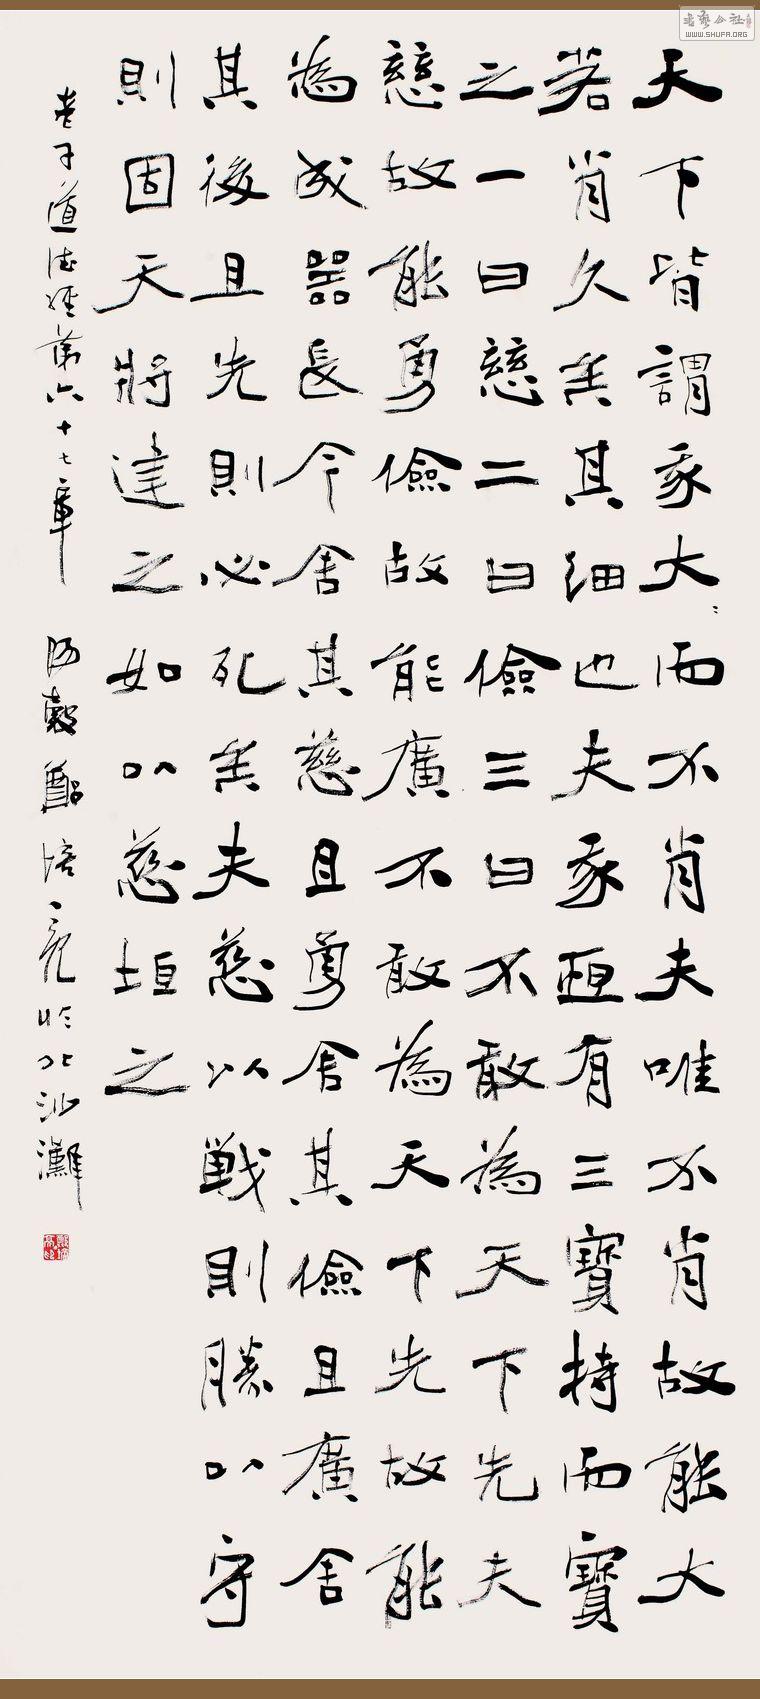 天下皆謂我大〻而不肖夫唯不肖故能大
若肖久矣其細也夫我恆有三寶持而寶
之一曰慈二曰儉三曰不敢為天下先夫
慈故能勇儉故能廣不敢為天下先故能
為成器長今舍其慈且勇舍其儉且廣舍
其後且先則必死矣夫慈以戦則勝以守
則固天將建之如以慈垣之
老子道德經第六十七章 培亮於北沙灘
書藝公社
WWW.SHUFA.ORG